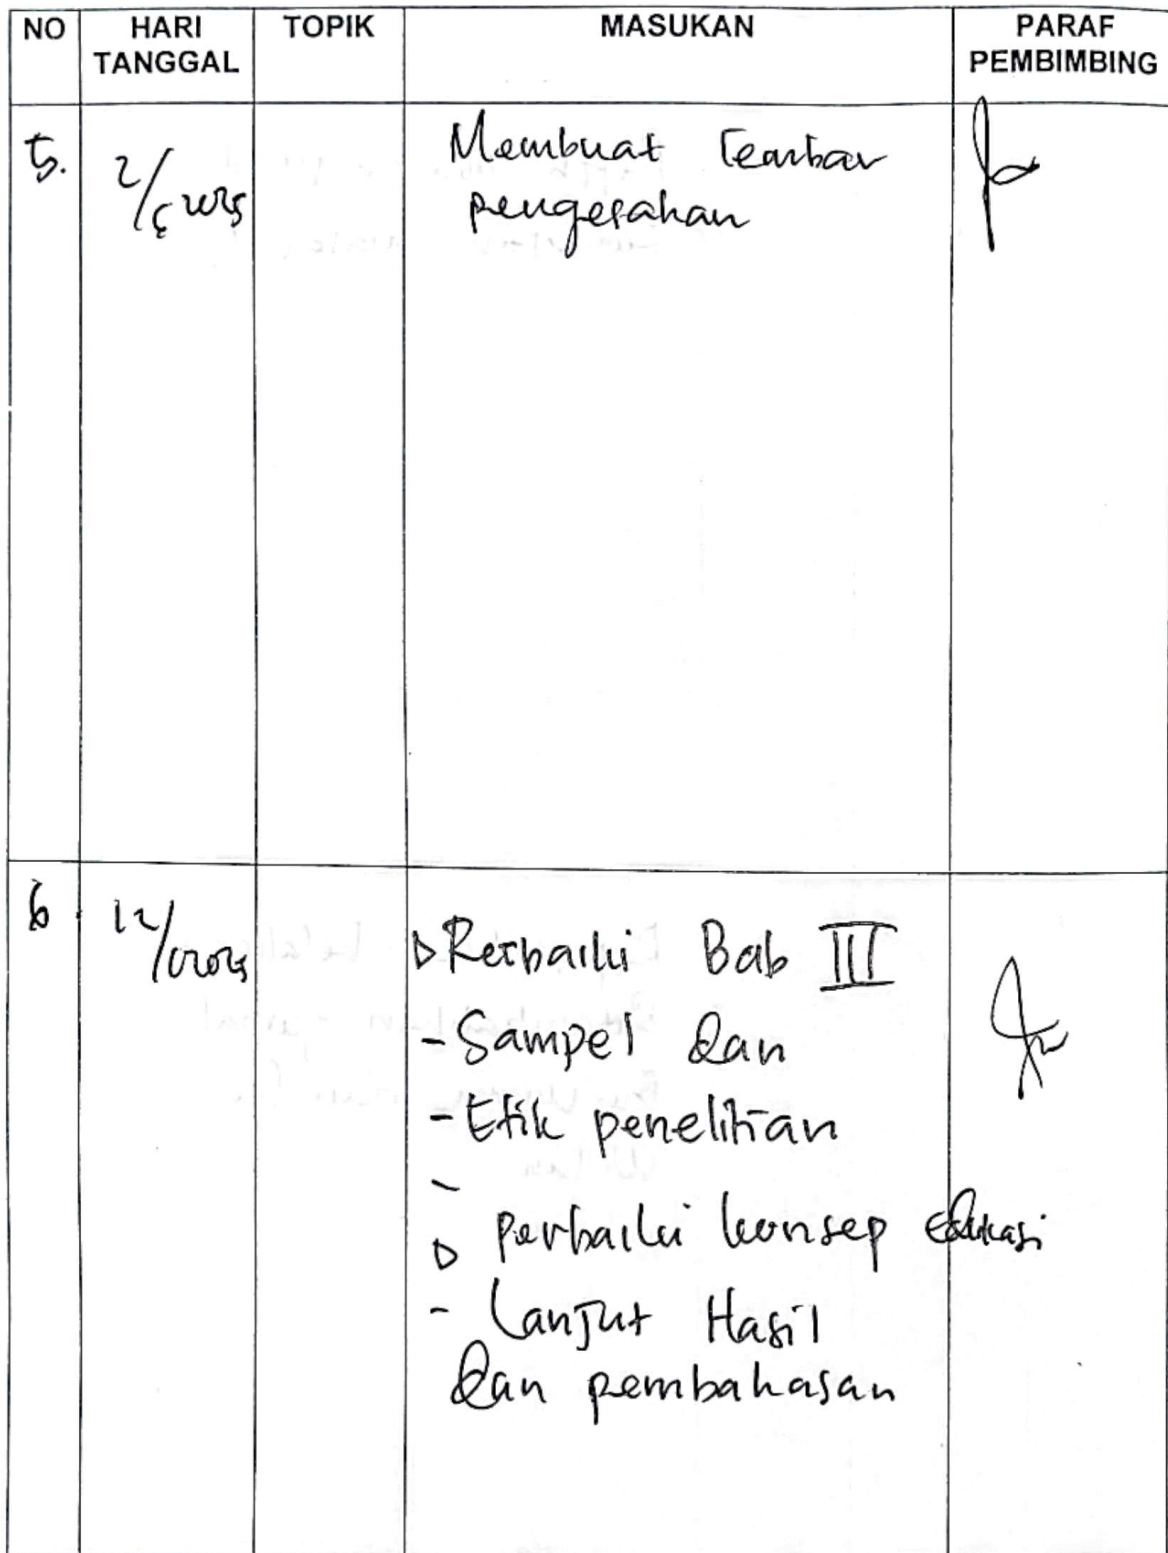 NO HARI TANGGAL TOPIK MASUKAN PARAF PEMBIMBING
5. 2/5 2025 Membuat lembar
pengesahan
6 12/
▷ Perbaiki Bab III
- Sampel dan
- Etik penelitian
-
▷ perbaiki konsep edukasi
- Lanjut Hasil
dan pembahasan